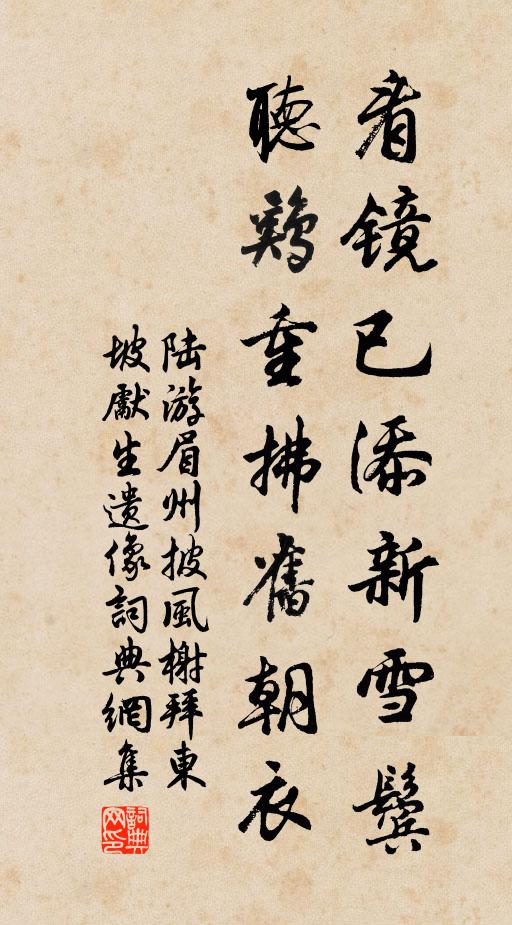 看镜已添新雪鬓
聽鷄重拂舊朝衣
陆游眉州披風榭拜東
坡獻生遺像詞典網集
詞典网印